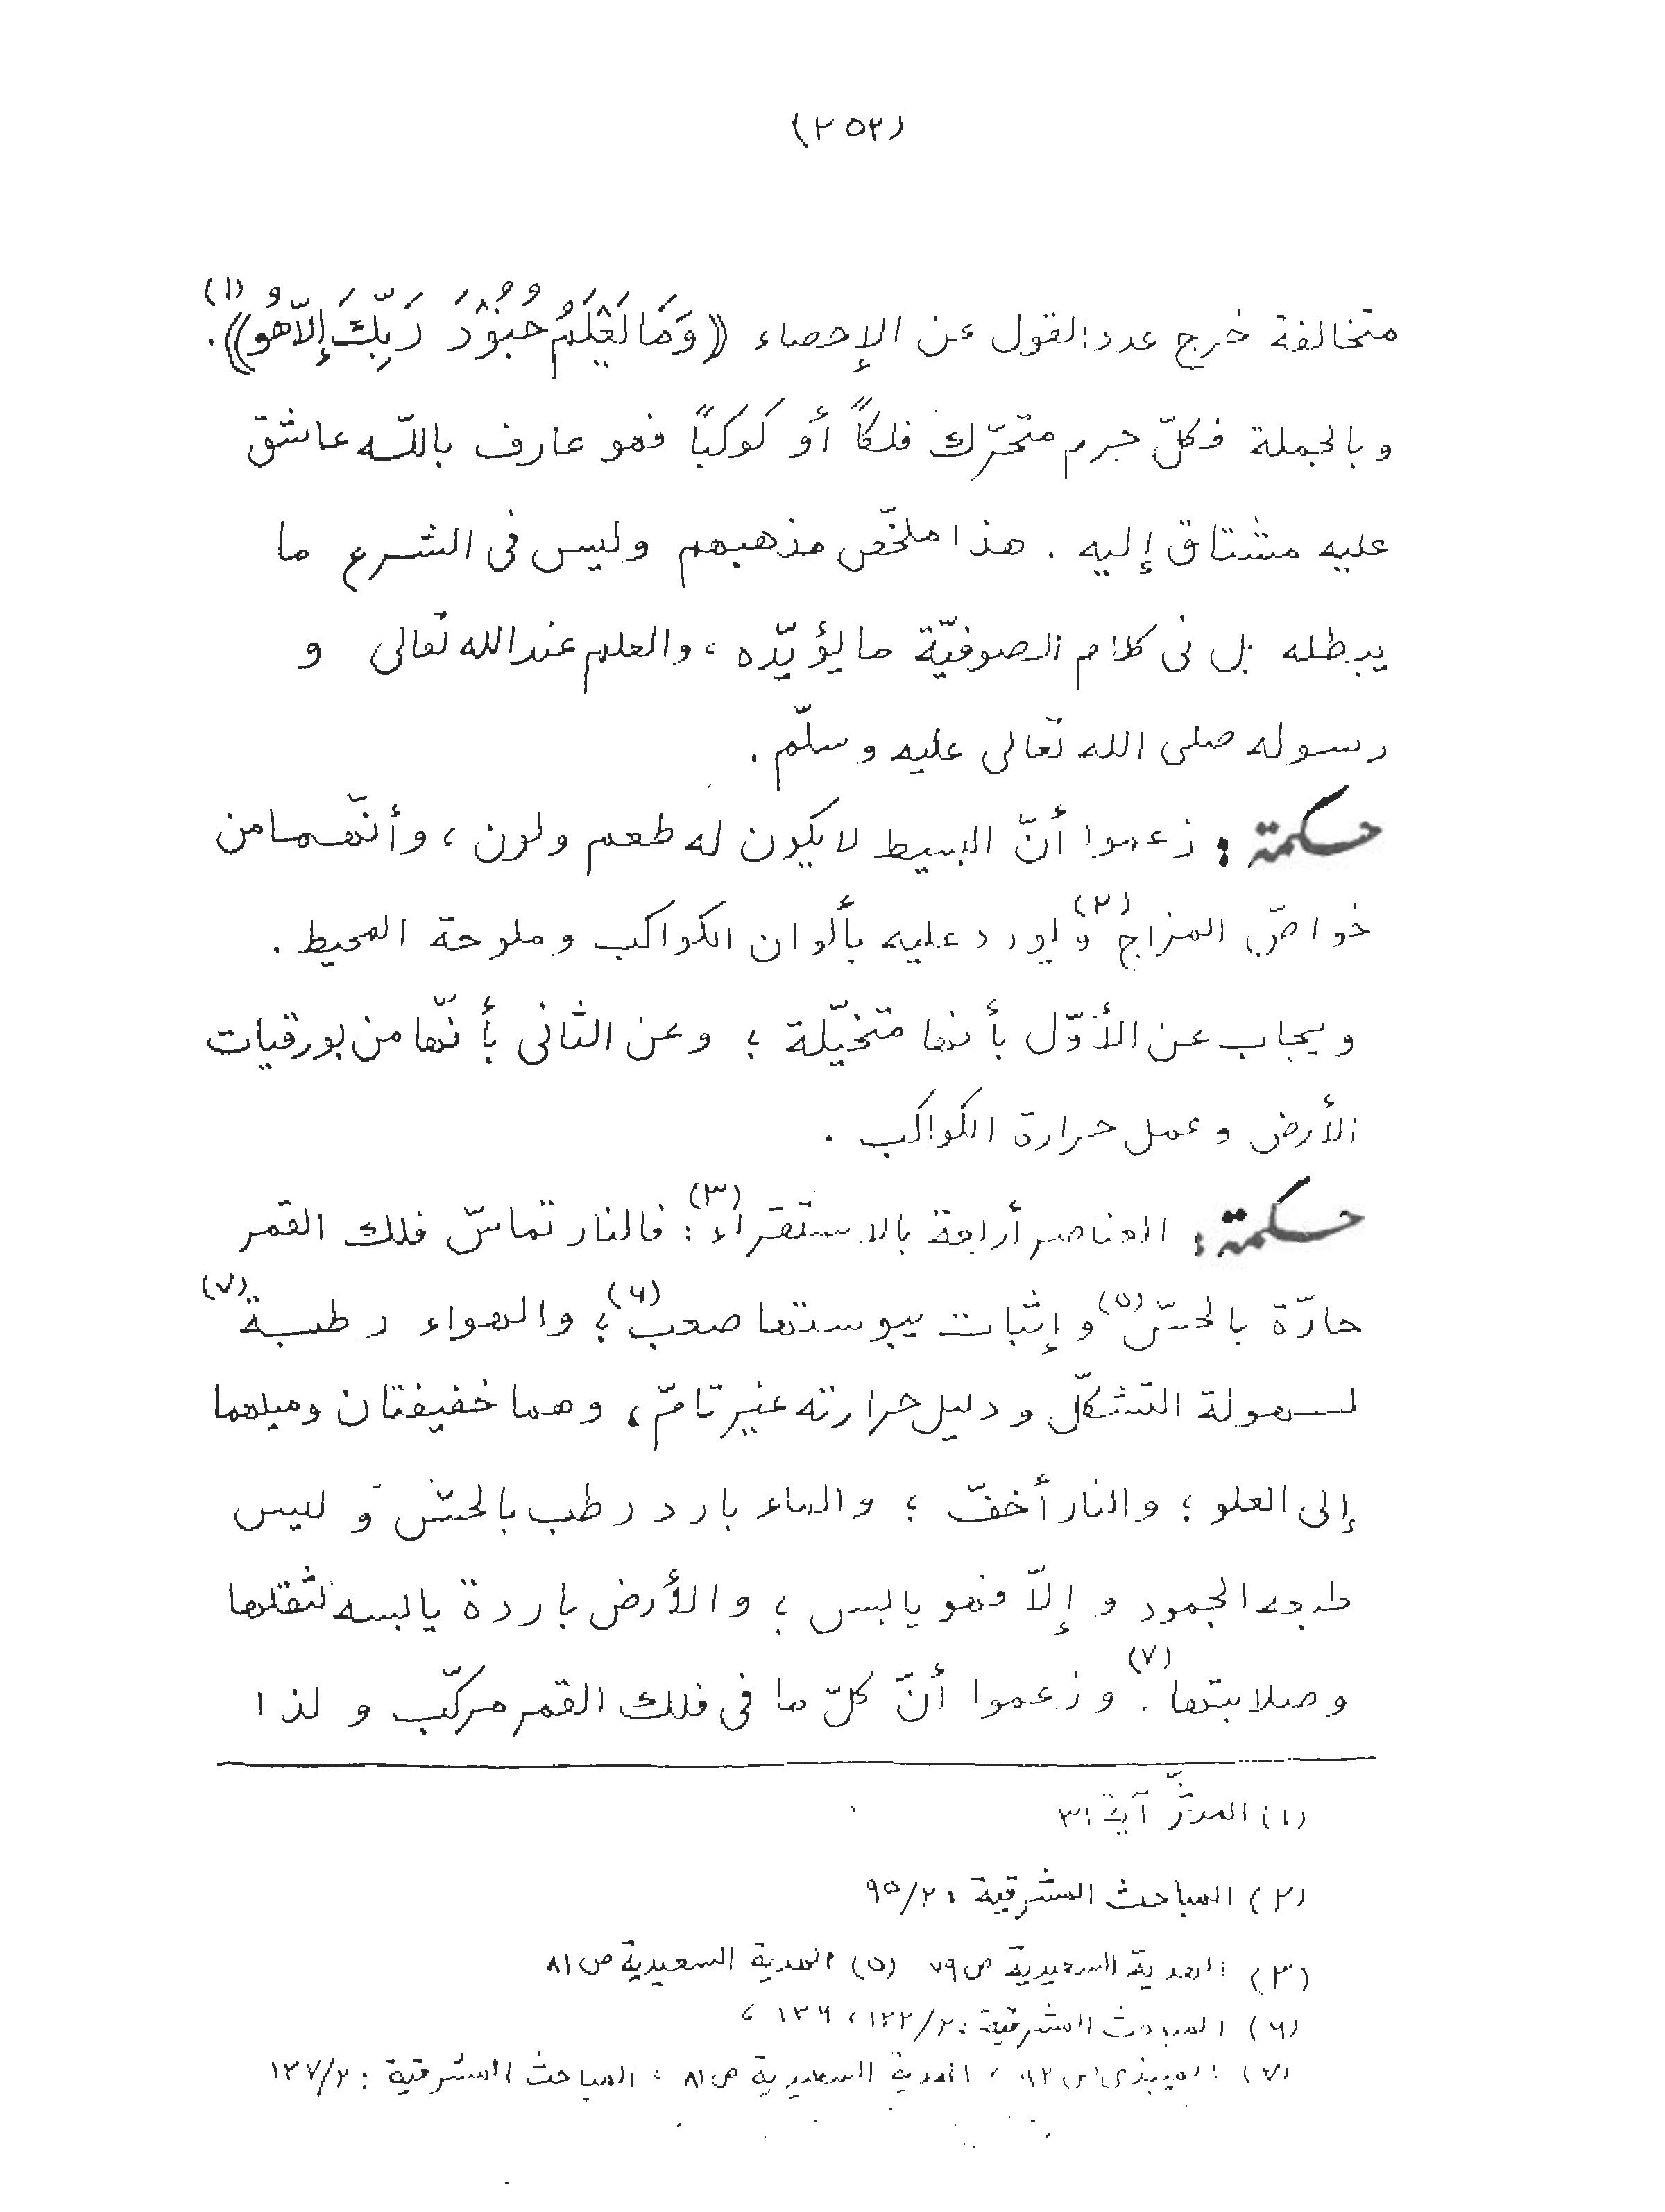 (٢٥٢)
متخالفة خرج عدد القول عن الإحصاء ((وَمَا يَعْلَمُ جُنُوْدَ رَبِّكَ إِلاَّ هُوَ)) (١).
و بالجملة فكلّ جرم متحرّك فلكاً أو كوكباً فهو عارف باللّه عاشق
عليه مشتاق إليه . هذا ملخّص مذهبهم وليس فى الشرع ما
يبطله بل فى كلام الصوفيّة ما يؤيّده ، والعلم عند الله تعالى و
رسوله صلى الله تعالى عليه وسلّم .
حكمة : زعموا أنّ البسيط لا يكون له طعم ولون ، وأنّهما من
خواصّ المزاج (٢) و يورد عليه بألوان الكواكب و ملوحة المحيط .
ويجاب عن الأوّل بأنها متخيّلة ؛ وعن الثانى بأنّها من بورقيات
الأرض و عمل حرارة الكواكب .
حكمة : العناصر أرابعة بالاستقراء (٣) : فالنار تماسّ فلك القمر
حارّة بالحسّ (٥) و إثبات يبوستها صعب (٦) ؛ والهواء رطبة (٧)
لسهولة التشكّل و دليل حرارته غير تامّ ، وهما خفيفتان وميلهما
إلى العلو ؛ والنار أخفّ ؛ والماء بارد رطب بالحسّ و ليس
طبعه الجمود و إلاّ فهو يابس ؛ و الأرض باردة يابسه لثقلها
وصلابتها (٧) . و زعموا أنّ كلّ ما فى فلك القمر مركّب و لذا
(١) المدثّر آية ٣١
(٢) المباحث المشرقية : ٢/٩٥
(٣) الهدية السعيدية ص ٧٩ (٥) الهدية السعيدية ص ٨١
(٦) المباحث المشرقية : ٢/١٢٢ ، ١٣٦ ،
(٧) الميبذى ص ٩٢ ، الهدية السعيدية ص ٨١ ، المباحث المشرقية : ٢/١٢٧